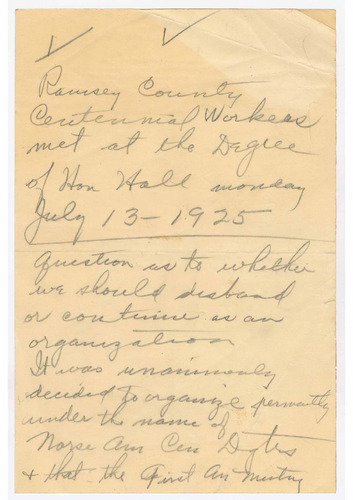 Ramsey County
Centennial Workers
met at the Degree
of Hon Hall monday
July 13-1925
Question as to whether
we should disband
or continue as an
organization
It was unanimously
decided to organize permantly
under the name of
Norse Am Cen Dgtrs
+ that the First An meeting